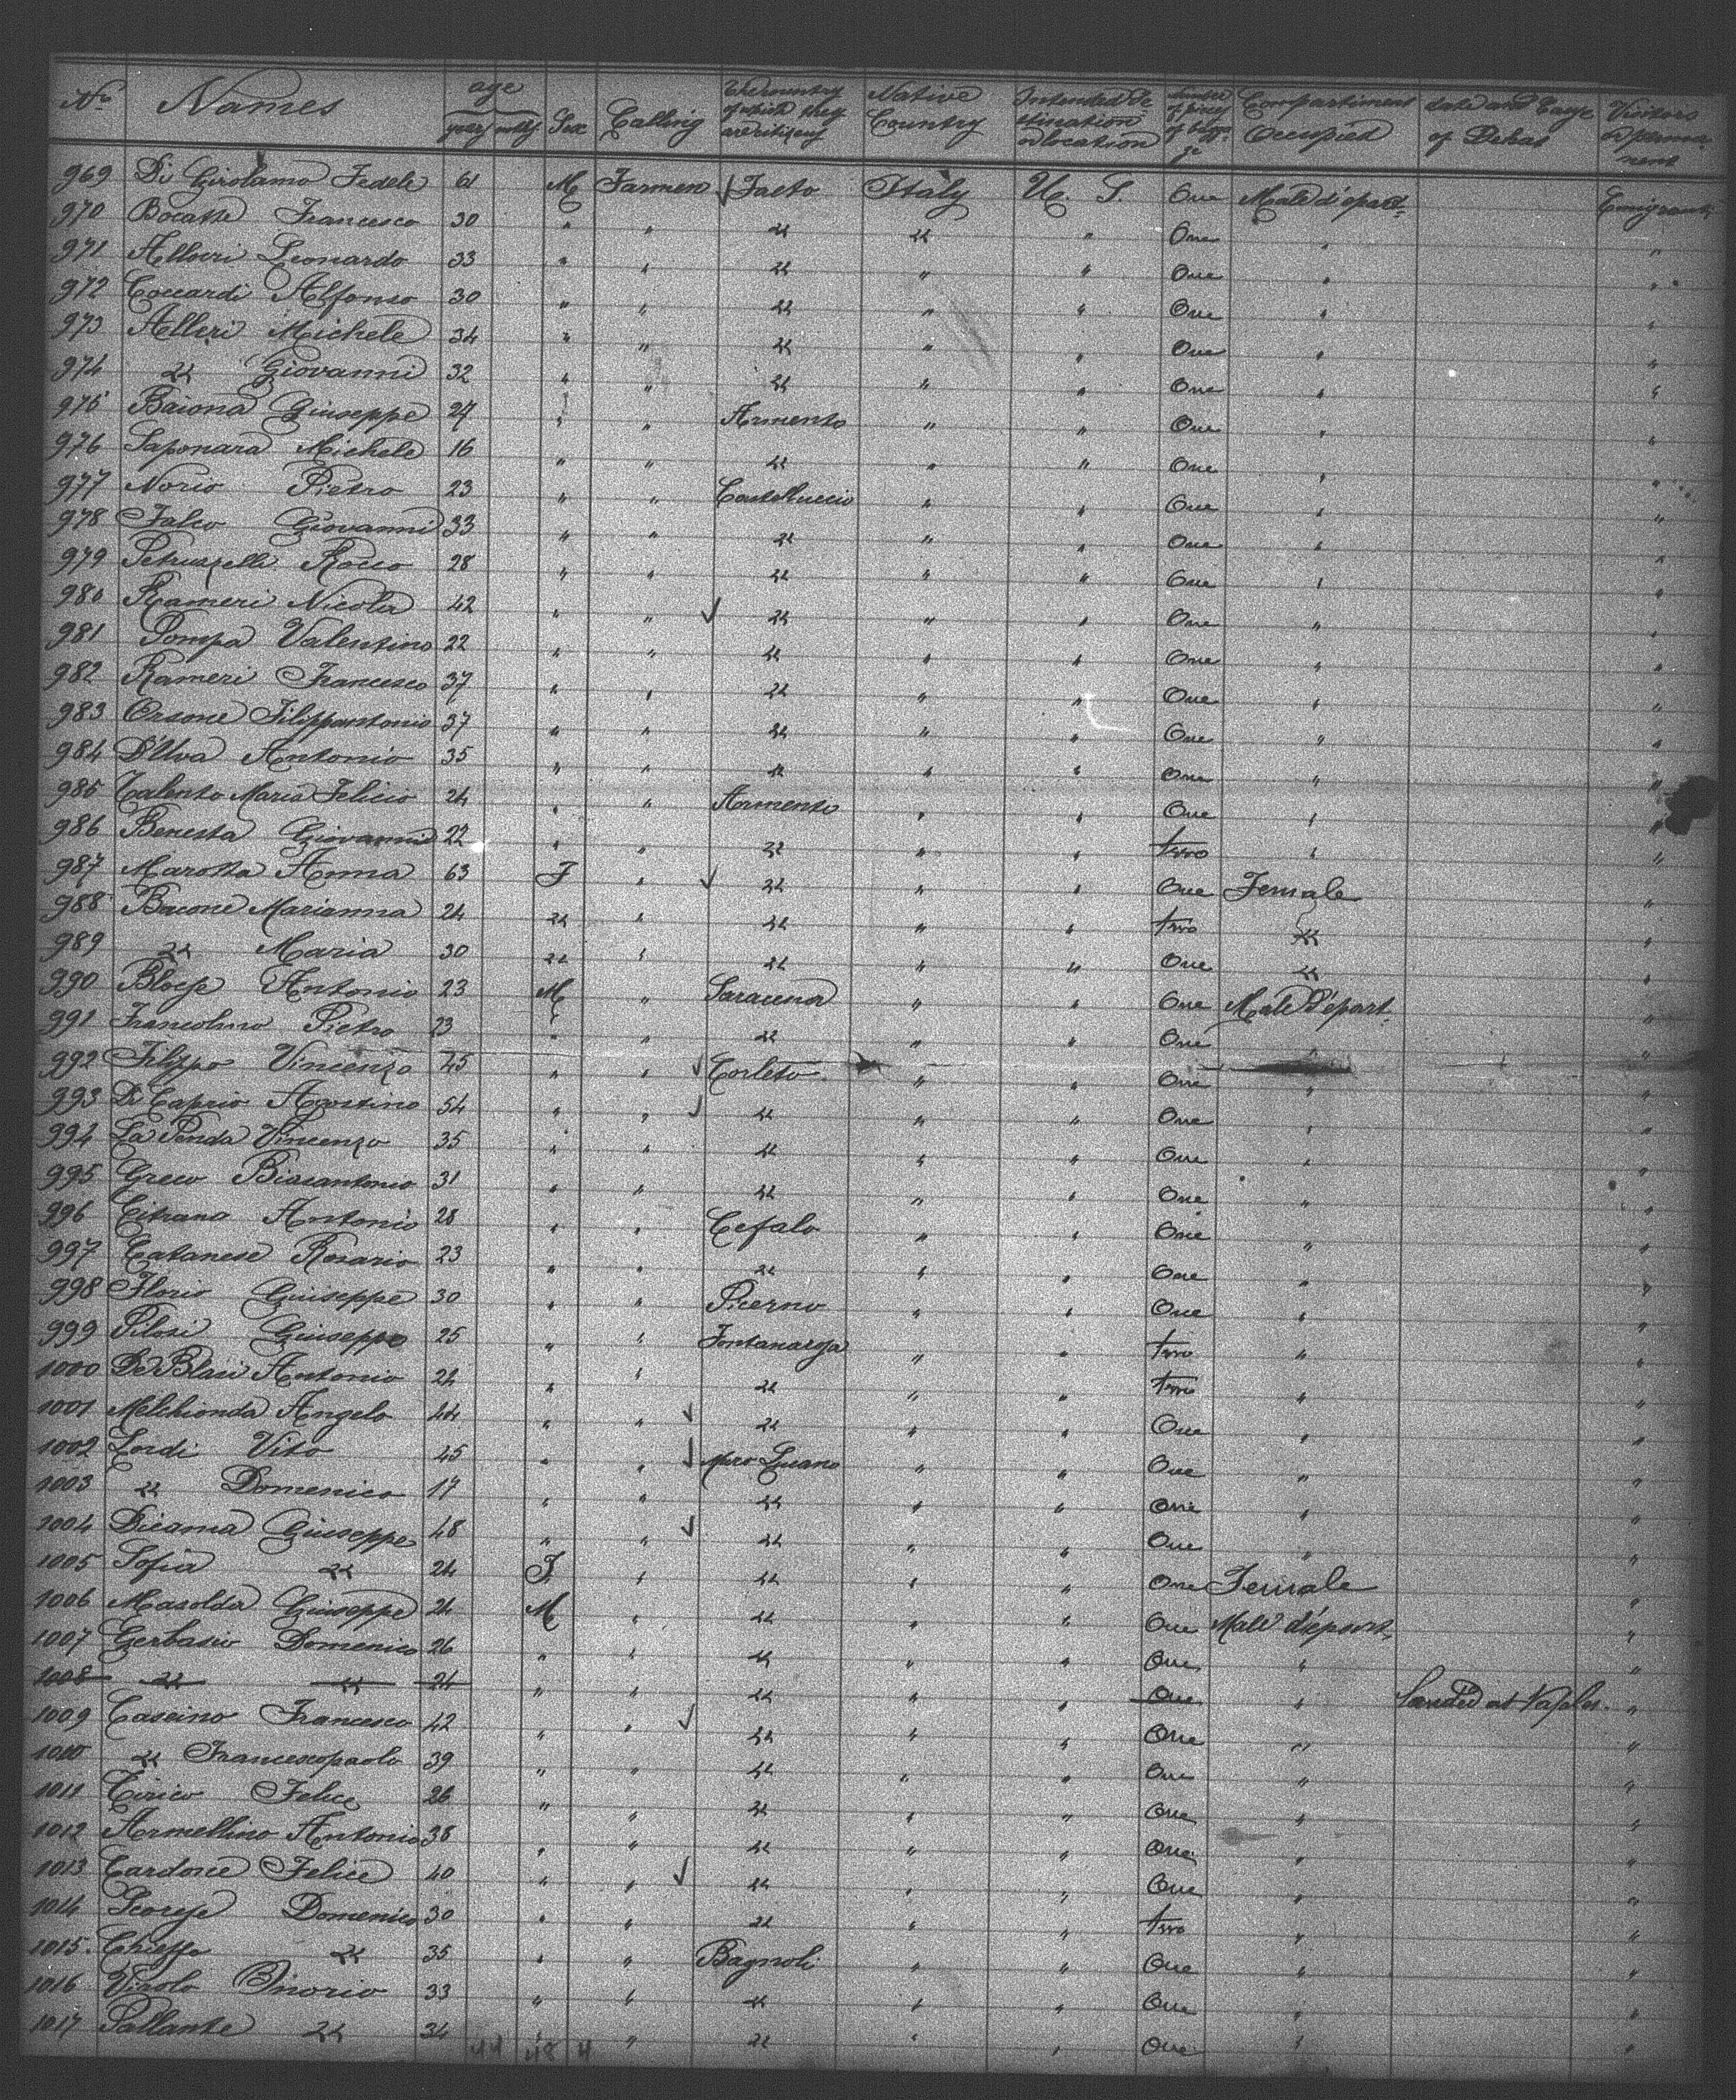 No Names age years Sex Calling The country of which they are citizens Native Country Intended destination or location Number of pieces of Compartiment Occupied date and Cause of Dehat Visitors
969 Di Girolamo Fedele 61 M Farmer Faeto Italy U. S. One Male d'epart. Emigrant
970 Francesco 30 " " " " " One " "
971 Leonardo 33 " " " " " One " "
972 Coccardi Alfonso 30 " " " " " One " "
973 Alleri Michele 34 " " " " " One " "
974 " Giovanni 32 " " " " " One " "
975 Baiona Giuseppe 27 " " Armento " " One " "
976 Saponara Michele 16 " " " " " One " "
977 Norio Pietro 23 " " Castelluccio " " One " "
978 Falco Giovanni 33 " " " " " One " "
979 Petruzzelli Rocco 28 " " " " " One " "
980 Rameri Nicola 42 " " " " " One " "
981 Pompa Valentino 22 " " " " " One " "
982 Rameri Francesco 37 " " " " " One " "
983 Orsone Filippantonio 37 " " " " " One " "
984 D'Elva Antonio 35 " " " " " One " "
985 Talento Maria Felicio 24 " " Armento " " One " "
986 Benesta Giovanni 22 " " " " " two " "
987 Marotta Anna 63 F " " " " One Female "
988 Bacone Marianna 24 " " " " " two " "
989 " Maria 30 " " " " " One " "
990 Antonio 23 M " Saracena " " One Male D'epart. "
991 Francolino Pietro 23 " " " " " One " "
992 Filippo Vincenzo 45 " " Corleto " " One " "
993 Di Caprio Agostino 54 " " " " " One " "
994 La Penda Vincenzo 35 " " " " " One " "
995 Greco Biasantonio 31 " " " " " One " "
996 Citrano Antonio 28 " " Cefalo " " One " "
997 Catanese Rosario 23 " " " " " One " "
998 Florio Giuseppe 30 " " Picerno " " One " "
999 Pilosi Giuseppe 25 " " Fontanarosa " " two " "
1000 De Blasi Antonio 24 " " " " " two " "
1001 Melchionda Angelo 44 " " " " " One " "
1002 Lordi Vito 45 " " Muro Lucano " " One " "
1003 " Domenico 17 " " " " " One " "
1004 Dicanna Giuseppe 48 " " " " " One " "
1005 Sofia " 24 F " " " " One Female "
1006 Masolda Giuseppe 24 M " " " " One Male d'epart. "
1007 Gerbasio Domenico 26 " " " " " One " "
1008 " " 24 " " " " " One " Landed at Naples. "
1009 Cascino Francesco 42 " " " " " One " "
1010 " Francescopaolo 39 " " " " " One " "
1011 Cirico Felice 26 " " " " " One " "
1012 Armellino Antonio 38 " " " " " One " "
1013 Cardone Felice 40 " " " " " One " "
1014 Domenico 30 " " " " " two " "
1015. Chieffo " 35 " " Bagnoli " " One " "
1016 Vivolo Onorio 33 " " " " " One " "
1017 Pallante " 34 " " " " " One " "
44 48 4